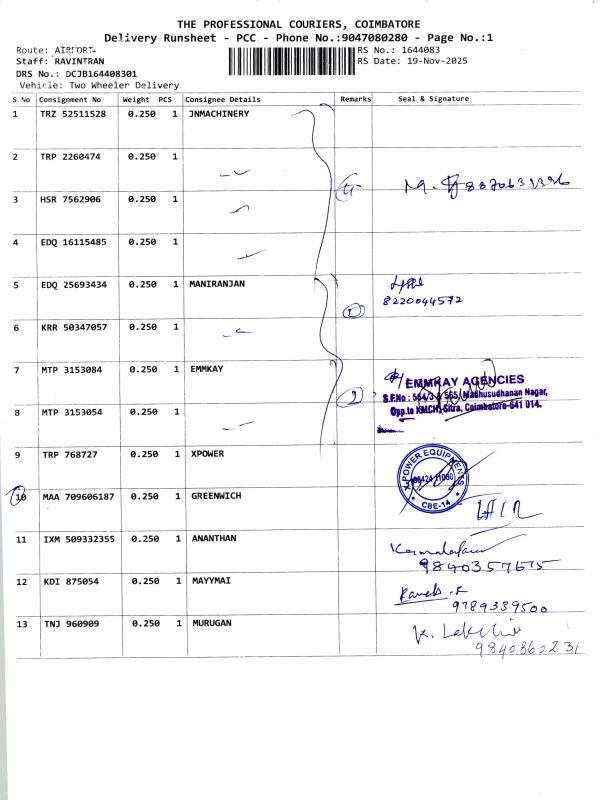 THE PROFESSIONAL COURIERS, COIMBATORE
Delivery Runsheet - PCC - Phone No.:9047080280 - Page No.:1
Route: AIRPORT RS No.: 1644083
Staff: RAVINTRAN RS Date: 19-Nov-2025
DRS No.: DCJB164408301
Vehicle: Two Wheeler Delivery
S No Consignment No Weight PCS Consignee Details Remarks Seal & Signature
1 TRZ 52511528 0.250 1 JNMACHINERY
2 TRP 2260474 0.250 1
8870631396
3 HSR 7562906 0.250 1
4 EDQ 16115485 0.250 1
5 EDQ 25693434 0.250 1 MANIRANJAN
8220044572
6 KRR 50347057 0.250 1
7 MTP 3153084 0.250 1 EMMKAY
EMMKAY AGENCIES
S.F.No : 564/3 & 565, Madhusudhanan Nagar,
Opp.to KMCH, Sitra, Coimbatore-641 014.
8 MTP 3153054 0.250 1
9 TRP 768727 0.250 1 XPOWER
X-POWER EQUIPMENTS
CBE-14
10 MAA 709606187 0.250 1 GREENWICH
11 IXM 509332355 0.250 1 ANANTHAN
9840357675
12 KDI 875054 0.250 1 MAYYMAI
9789339500
13 TNJ 960909 0.250 1 MURUGAN
9840360231